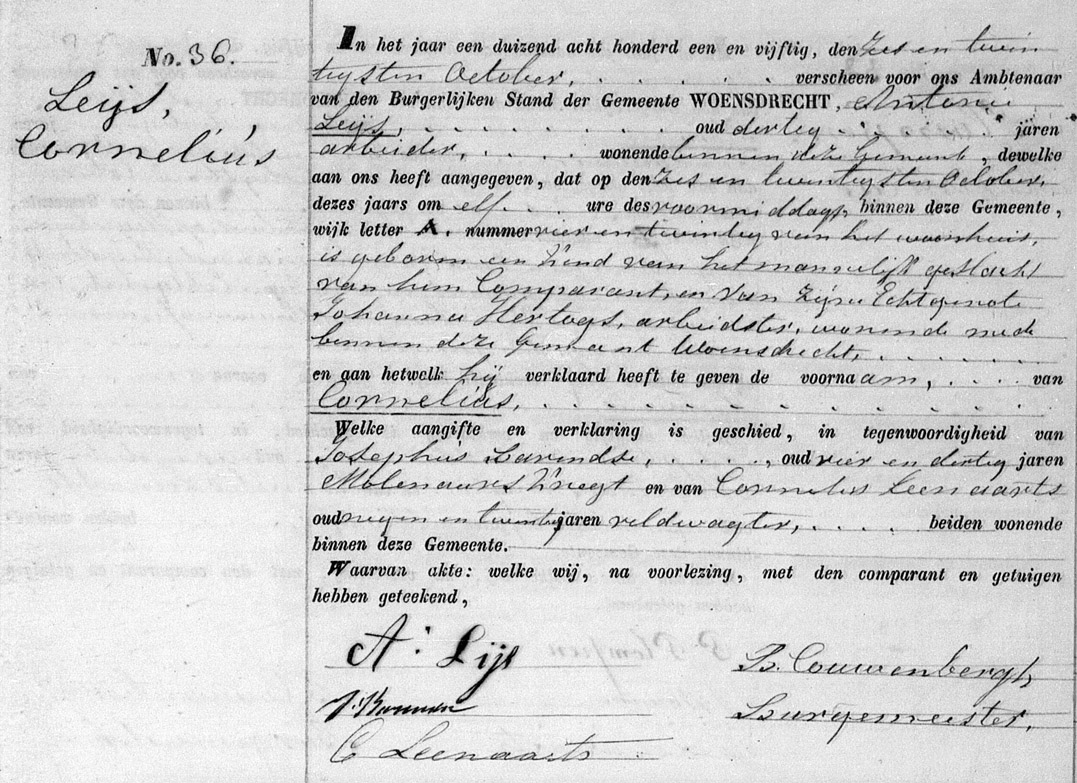 No. 36.
Leijs,
Cornelius
In het jaar een duizend acht honderd een en vijftig, den zes en twin
tigsten October, . . . . . . verscheen voor ons Ambtenaar
van den Burgerlijken Stand der Gemeente WOENSDRECHT, Antonie
Leijs, . . . . . . . . . oud dertig . . . . jaren
arbeider, . . . . wonende binnen deze Gemeente, dewelke
aan ons heeft aangegeven, dat op den zes en twentigsten October,
dezes jaars om elf . . . ure des voormiddags, binnen deze Gemeente,
wijk letter A, nummer vier en twentig van het woonhuis,
is geboren een Kind van het mannelijk geslacht
van hem Comparant, en van zijne Echtgenote
Johanna Hertogs, arbeidster, wonende mede
binnen deze Gemeent Woensdrecht, . . . . . . .
en aan hetwelk hij verklaard heeft te geven de voornaam, . . . . van
Cornelius, . . . . . . . . . . . . . . .
Welke aangifte en verklaring is geschied, in tegenwoordigheid van
Josephus . . . . , oud vier en dertig jaren
Molenaars Knegt en van Cornelus Leenaarts
oud negen en twentig jaren veldwagter, . . . . beiden wonende
binnen deze Gemeente.
Waarvan akte: welke wij, na voorlezing, met den comparant en getuigen
hebben geteekend,
A. Lijs
B. Couwenbergh,
Burgemeester,
C Leenaarts